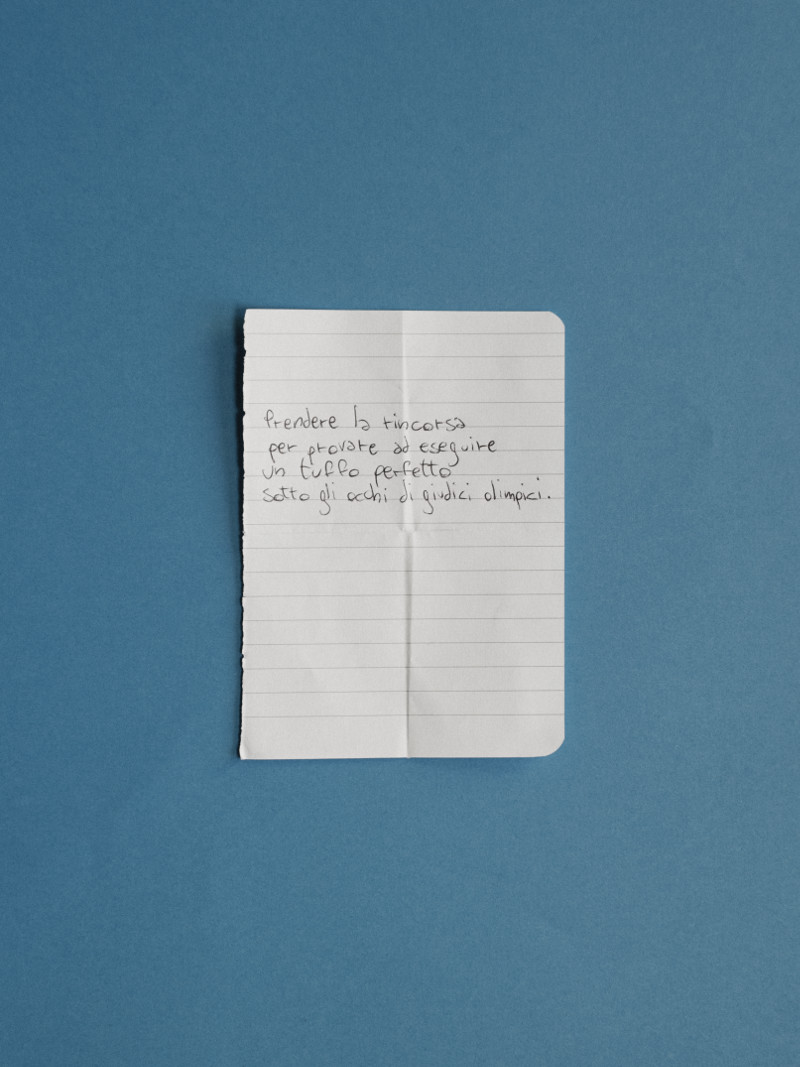 Prendere la rincorsa
per provare ad eseguire
un tuffo perfetto
sotto gli occhi di giudici olimpici.